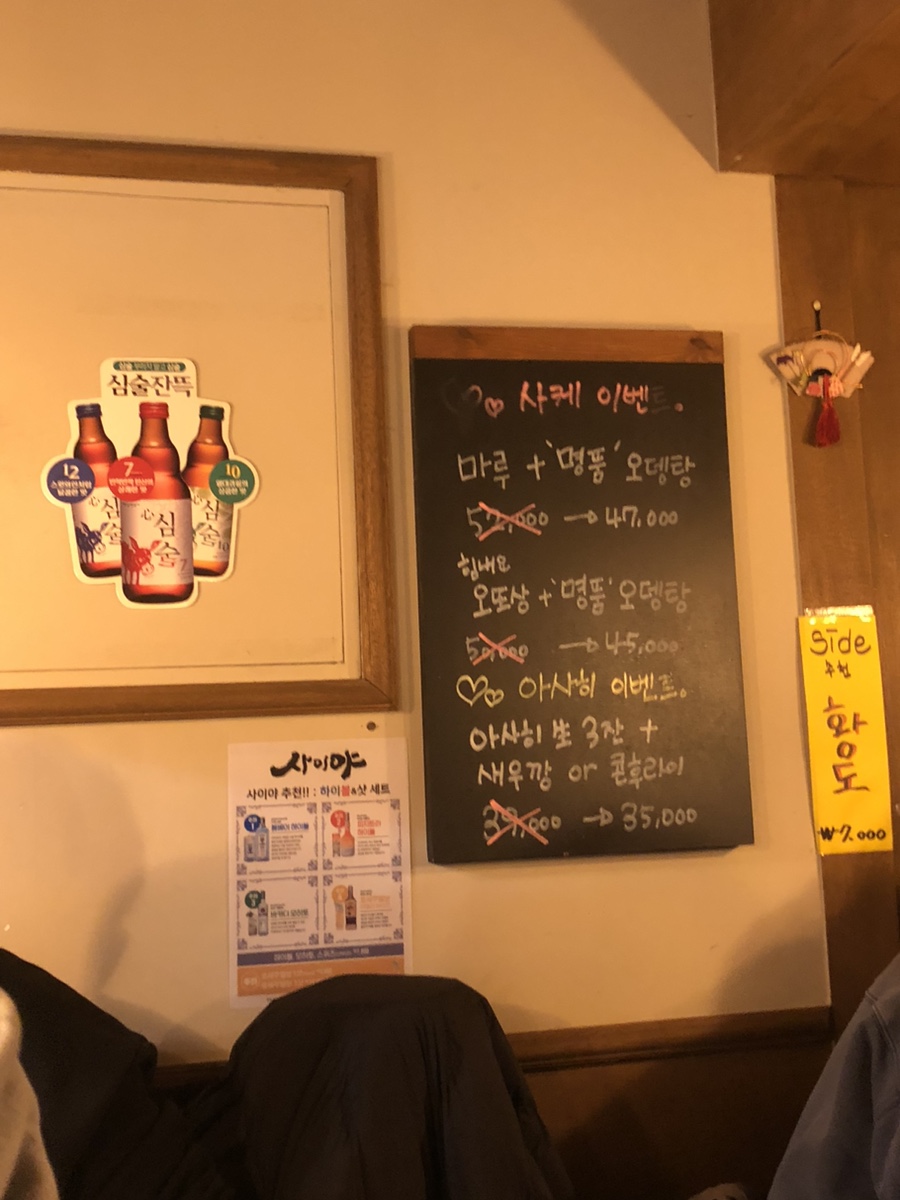 심술잔뜩
12
7
10
심술
심술7
심술
♡♡ 사케 이벤트.
마루 + '명품' 오뎅탕
52,000 → 47,000
힘내요
오또상 + '명품' 오뎅탕
50,000 → 45,000
♡♡ 아사히 이벤트.
아사히 生 3잔 +
새우깡 or 콘후라이
39,000 → 35,000
Side
추천
황도
₩7.000
사이야
사이야 추천!! : 하이볼&샷 세트